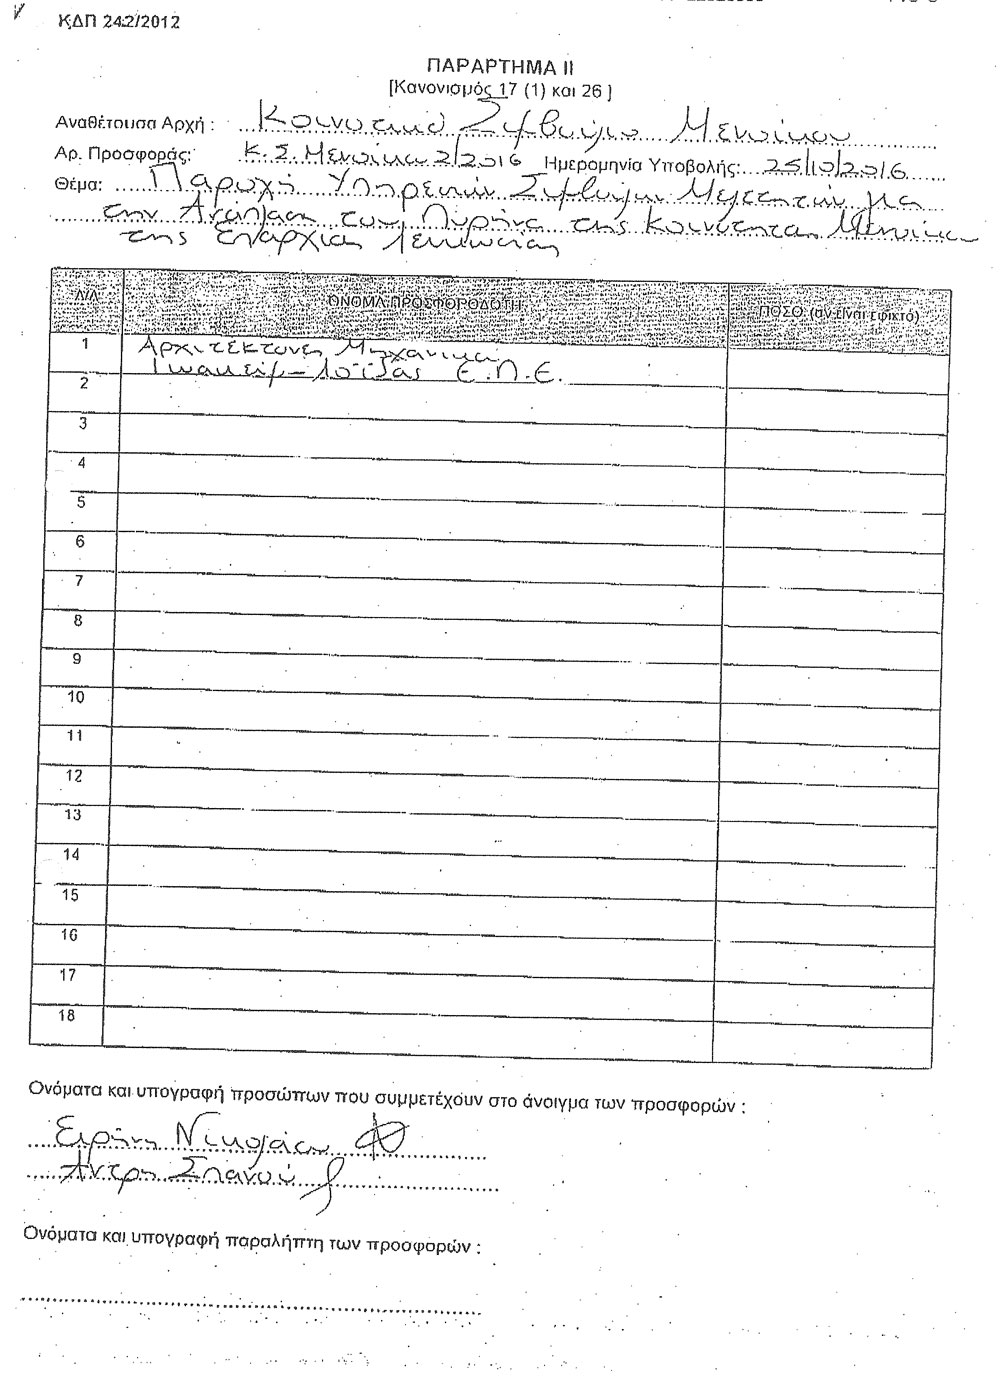 ΚΔΠ 242/2012
ΠΑΡΑΡΤΗΜΑ ΙΙ
[Κανονισμός 17 (1) και 26 ]
Αναθέτουσα Αρχή : Κοινοτικό Συμβούλιο Μενοίκου
Αρ. Προσφοράς: Κ.Σ. Μενοίκου 2/2016 Ημερομηνία Υποβολής: 25/10/2016
Θέμα: Παροχή Υπηρεσιών Συμβούλων Μελετητών για
την Ανάπλαση του Πυρήνα της Κοινότητας Μενοίκου
της επαρχίας Λευκωσίας
Α/Α ΟΝΟΜΑ ΠΡΟΣΦΟΡΟΔΟΤΗ ΠΟΣΟ (αν είναι εφικτό)
1 Αρχιτέκτονες Μηχανικοί
Ιωακείμ-Λοΐζας Ε.Π.Ε.
2
3
4
5
6
7
8
9
10
11
12
13
14
15
16
17
18
Ονόματα και υπογραφή προσώπων που συμμετέχουν στο άνοιγμα των προσφορών :
Ειρήνη Νικολάου
Άντρη Σπανού
Ονόματα και υπογραφή παραλήπτη των προσφορών :